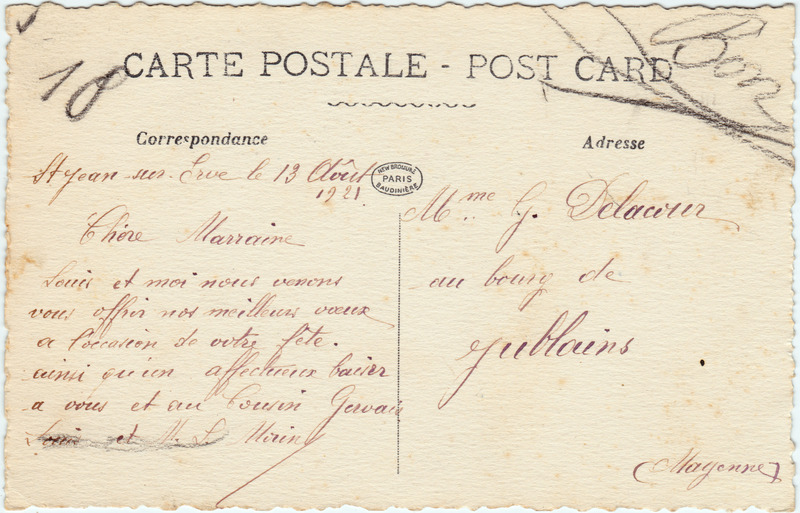 18
CARTE POSTALE - POST CARD
Bon
Correspondance
Adresse
NEW BROMURE
PARIS
BAUDINIÈRE
St Jean-sur-Erve le 13 Août
1921
Chère Marraine
Louis et moi nous venons
vous offrir nos meilleurs vœux
a l'occasion de votre fête.
ainsi qu'un affectueux baiser
a vous et au Cousin Gervais
Louis et M. L. Morin
Mme G. Delacour
au bourg de
Jublains
(Mayenne)